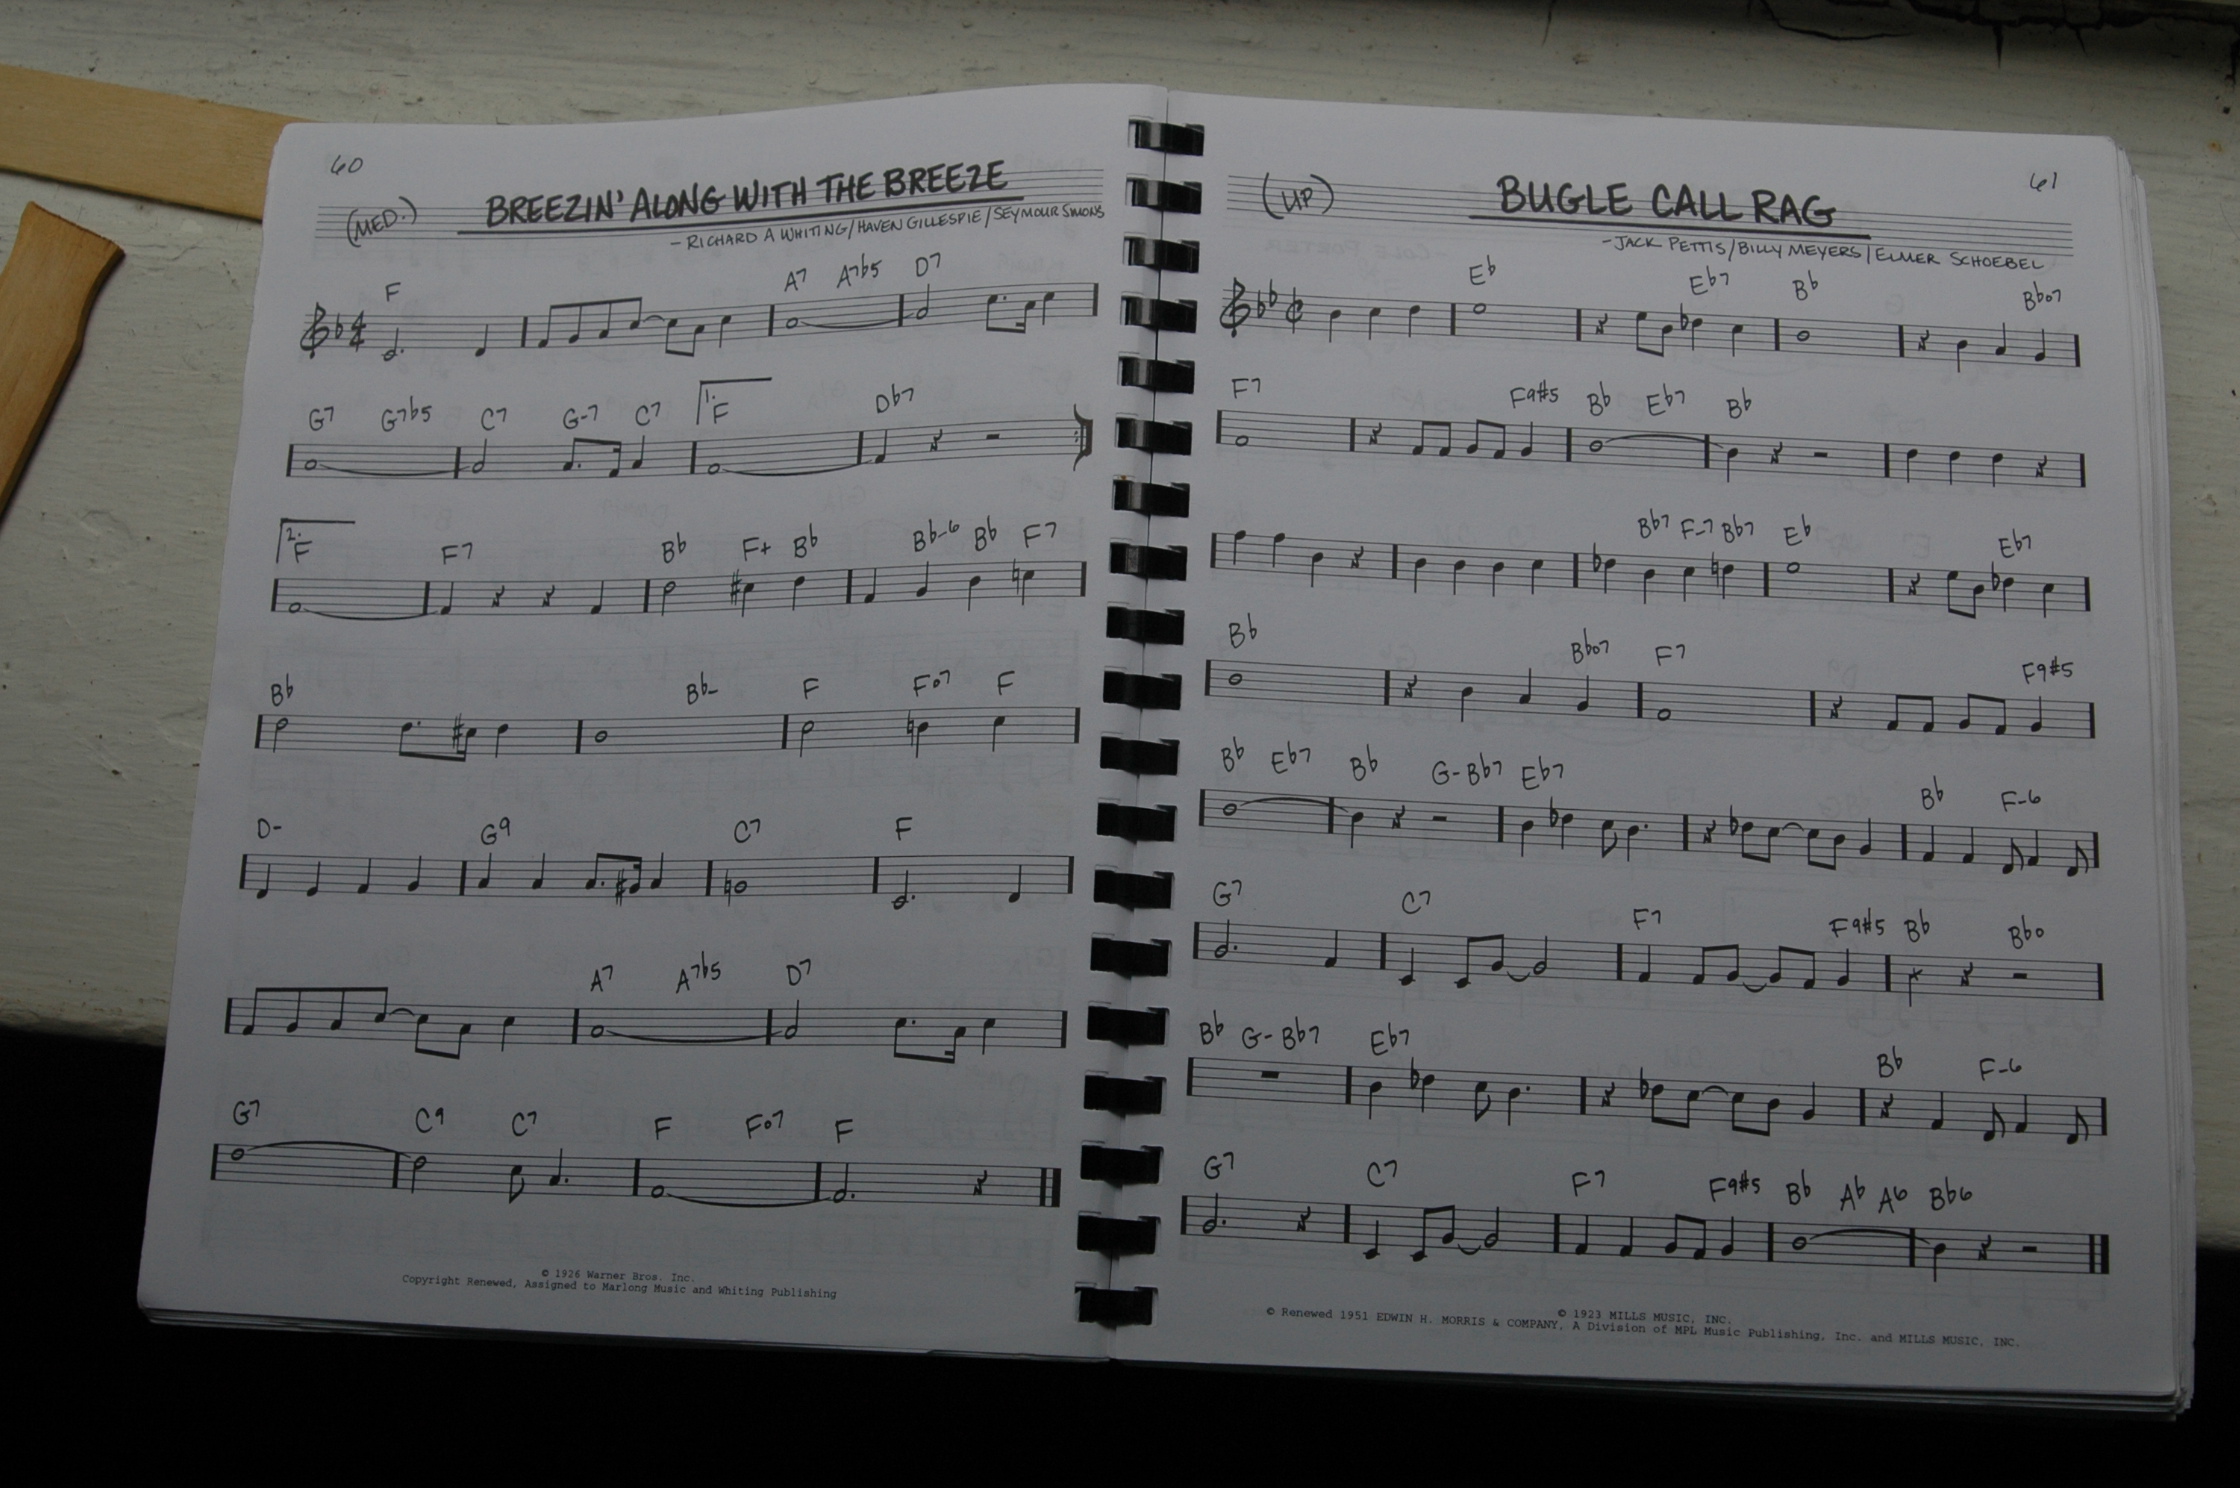 60
(MED.)
BREEZIN' ALONG WITH THE BREEZE
- RICHARD A WHITING/HAVEN GILLESPIE/SEYMOUR SIMONS
F A7 A7b5 D7
G7 G7b5 C7 G-7 C7 1. F Db7
2. F F7 Bb F+ Bb Bb-6 Bb F7
Bb Bb- F Fo7 F
D- G9 C7 F
A7 A7b5 D7
G7 C9 C7 F Fo7 F
© 1926 Warner Bros. Inc.
Copyright Renewed, Assigned to Marlong Music and Whiting Publishing
61
(UP)
BUGLE CALL RAG
- JACK PETTIS/BILLY MEYERS/ELMER SCHOEBEL
Eb Eb7 Bb Bbo7
F7 F9#5 Bb Eb7 Bb
Bb7 F-7 Bb7 Eb Eb7
Bb Bbo7 F7 F9#5
Bb Eb7 Bb G- Bb7 Eb7 Bb F-6
G7 C7 F7 F9#5 Bb Bbo
Bb G- Bb7 Eb7 Bb F-6
G7 C7 F7 F9#5 Bb Ab A6 Bb6
© 1923 MILLS MUSIC, INC.
© Renewed 1951 EDWIN H. MORRIS & COMPANY, A Division of MPL Music Publishing, Inc. and MILLS MUSIC, INC.